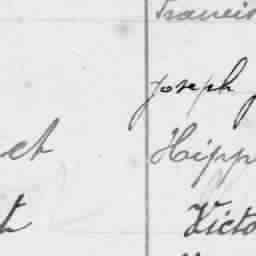 Francis
Joseph
et Hipp
t Victo